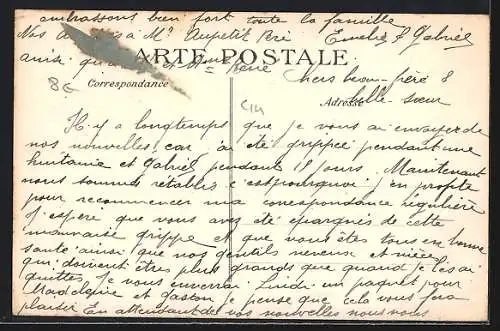 embrassons bien fort toute la famille
Nos à Mr Aupetit Emelie & Gabriel
ainsi et Mme
CARTE POSTALE
Chers beau-frère &
belle-sœur
Correspondance
Adresse
8€
C14
Il y a longtemps que je vous ai envoyer de
nos nouvelles, car j'ai été grippée pendant une
huitaine et Gabriel pendant 15 jours. Maintenant
nous sommes rétablis c'est pourquoi j'en profite
pour recommencer ma correspondance régulière
J'espère que vous avez été épargnés de cette
mauvaise grippe et que vous êtes tous en bonne
santé ainsi que vos gentils neveux et nièce
qui doivent êtres plus grands que quand je les ai
quittés. Je vous enverrai Lundi un paquet pour
Madeleine et Gaston je pense que cela vous fera
plaisir En attendant de vos nouvelles nous vous